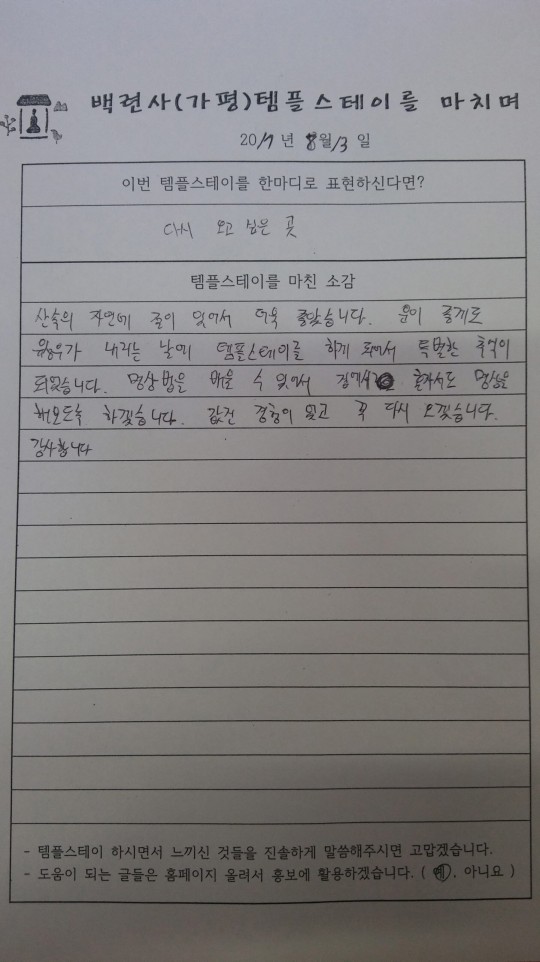 백련사(가평)템플스테이를 마치며
2017년 8월 13일
이번 템플스테이를 한마디로 표현하신다면?
다시 오고 싶은 곳
템플스테이를 마친 소감
산속의 자연에 절이 있어서 더욱 좋았습니다. 운이 좋게도
유성우가 내리는 날에 템플스테이를 하게 되어서 특별한 추억이
되었습니다. 명상법을 배울 수 있어서 집에서 혼자서도 명상을
해보도록 하겠습니다. 값진 경험이 었고 꼭 다시 오겠습니다.
감사합니다
- 템플스테이 하시면서 느끼신 것들을 진솔하게 말씀해주시면 고맙겠습니다.
- 도움이 되는 글들은 홈페이지 올려서 홍보에 활용하겠습니다. ( 예, 아니요 )